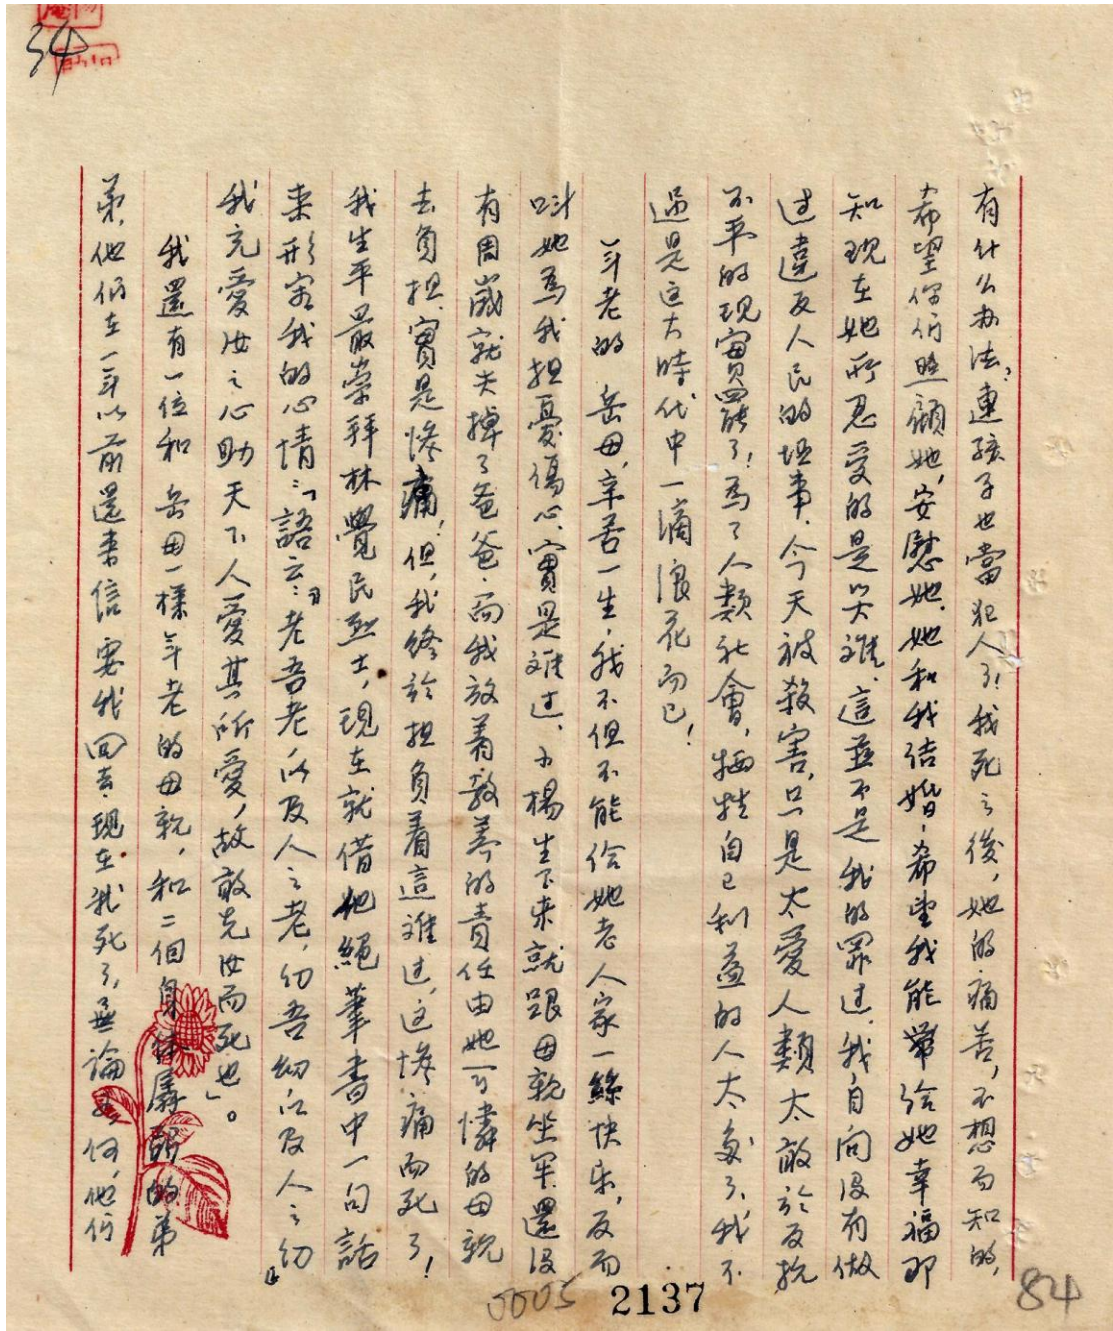 34
有什么办法?連孩子也當犯人了!我死之後,她的痛苦,不想而知的,
希望你们照顧她,安慰她,她和我结婚,希望我能帶给她幸福那
知现在她所忍受的是災难,這並不是我的罪过,我自问没有做
过違反人民的坦事,今天被殺害,只是太爱人類太敢於反抗
不平的现實罷了!為了人類社會,犧牲自己利益的人太多了,我不
過是这大時代中一滴浪花而已!
年老的 岳母,辛苦一生,我不但不能给她老人家一絲快乐,反而
叫她為我担憂傷心,實是难过,小楊生下来就跟母親坐军,還没
有周歲就失掉了爸爸,而我放着教养的責任由她可憐的母親
去負担,實是惨痛!但,我终於担負着這难过,这惨痛而死了!
我生平最崇拜林覺民烈士,现在就借他絕筆書中一句話
来形容我的心情:「語云:『老吾老以及人之老,幼吾幼以及人之幼』
我充爱汝之心助天下人爱其所爱,故敢先汝而死也」。
我還有一位和 岳母一樣年老的母親,和二個身体孱弱的弟
弟,他们在一年以前還書信要我回去,现在我死了,無論如何,他们
0005 2137 84